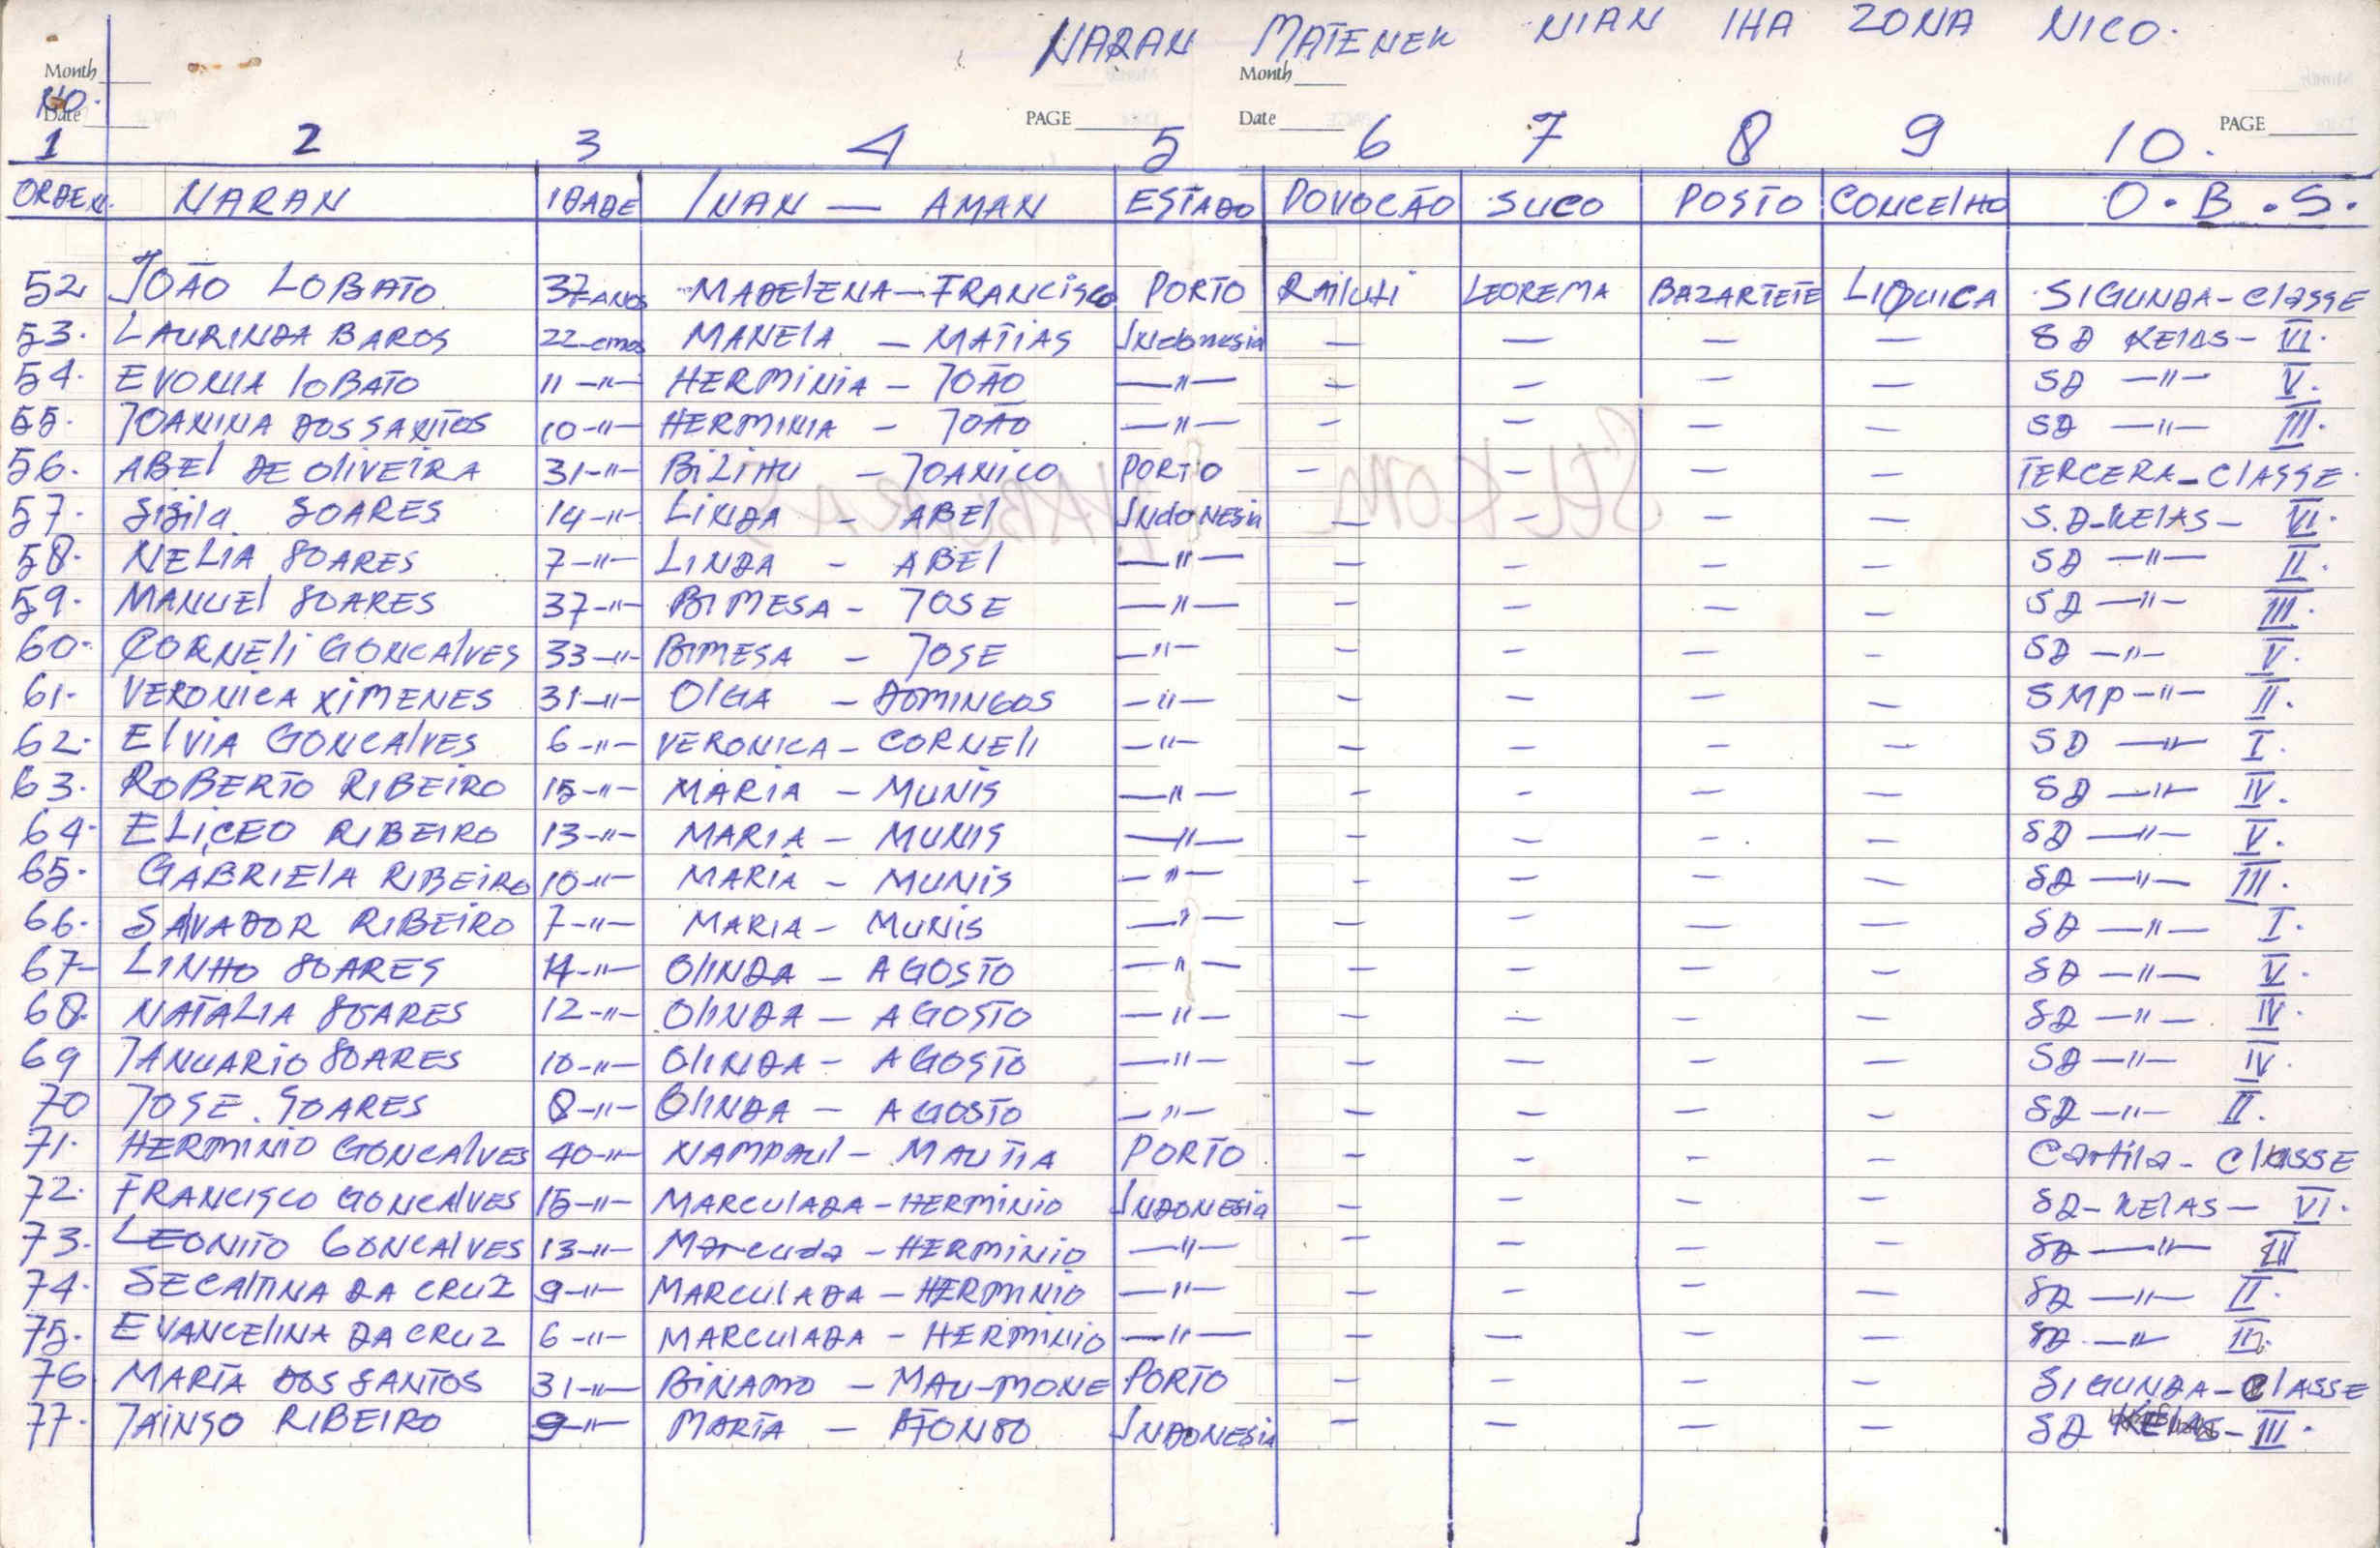 NARAN MATENEK NIAN IHA ZONA NICO.
Month Month
NO.
Date PAGE Date PAGE
1 2 3 4 5 6 7 8 9 10.
ORDEN. NARAN IDADE INAN — AMAN ESTADO POVOCÃO SUCO POSTO CONCELHO O.B.S.
52 JOÃO LOBATO 37 ANOS MADELENA — FRANCISCO PORTO Railuti LEOREMA BAZARTETE LIQUICA SIGUNDA - Classe
53. LAURINDA BAROS 22 - anos MANELA — MATIAS Indonesia — — — — SD KELAS - VI.
54. EVONIA LOBATO 11 -"- HERMINIA - JOÃO —"— — — — — SD —"— V.
55. JOANINA DOS SANTOS 10 -"- HERMINIA - JOÃO —"— — — — — SD —"— III.
56. ABEL DE OLIVEIRA 31 -"- BILIHU - JOANICO PORTO — — — — TERCERA - CLASSE.
57. Sisila SOARES 14 -"- LINDA - ABEL INdoNESia — — — — S.D - KELAS - VI.
58. NELIA SOARES 7 -"- LINDA - ABEL —"— — — — — SD —"— II.
59. MANUEL SOARES 37 -"- BIMESA - JOSE —"— — — — — SD —"— III.
60. CORNELI GONCALVES 33 -"- BIMESA - JOSE —"— — — — — SD —"— V.
61. VERONICA XIMENES 31 -"- OLGA - DOMINGOS —"— — — — — SMP —"— II.
62. ELVIA GONCALVES 6 -"- VERONICA - CORNELI —"— — — — — SD —"— I.
63. ROBERTO RIBEIRO 15 -"- MARIA - MUNIS —"— — — — — SD —"— IV.
64. ELICEO RIBEIRO 13 -"- MARIA - MUNIS —"— — — — — SD —"— V.
65. GABRIELA RIBEIRO 10 -"- MARIA - MUNIS —"— — — — — SD —"— III.
66. SAVADOR RIBEIRO 7 -"- MARIA - MUNIS —"— — — — — SD —"— I.
67 - LINHO SOARES 14 -"- OLINDA - AGOSTO —"— — — — — SD —"— V.
68. NATALIA SOARES 12 -"- OLINDA - AGOSTO —"— — — — — SD —"— IV.
69 JANUARIO SOARES 10 -"- OLINDA - AGOSTO —"— — — — — SD —"— IV.
70 JOSE. SOARES 8 -"- OLINDA - AGOSTO —"— — — — — SD —"— II.
71. HERMINIO GONCALVES 40 -"- NAMPAUL - MAUTIA PORTO — — — — Cartila - CLASSE
72. FRANCISCO GONCALVES 15 -"- MARCULADA - HERMINIO INDONESia — — — — SD - KELAS — VI.
73. LEONITO GONCALVES 13 -"- Marcuda - HERMINIO —"— — — — — SD —"— III
74. SECALTINA DA CRUZ 9 -"- MARCULADA - HERMINIO —"— — — — — SD —"— II.
75. EVANCELINA DA CRUZ 6 -"- MARCULADA - HERMINIO —"— — — — — SD —"— III.
76 MARIA DOS SANTOS 31 -"- BINAMO - MAU-MONE PORTO — — — — SIGUNDA - CLASSE
77. JAINSO RIBEIRO 9 -"- MARIA - AFONSO INDONESia — — — — SD KELAS - III.